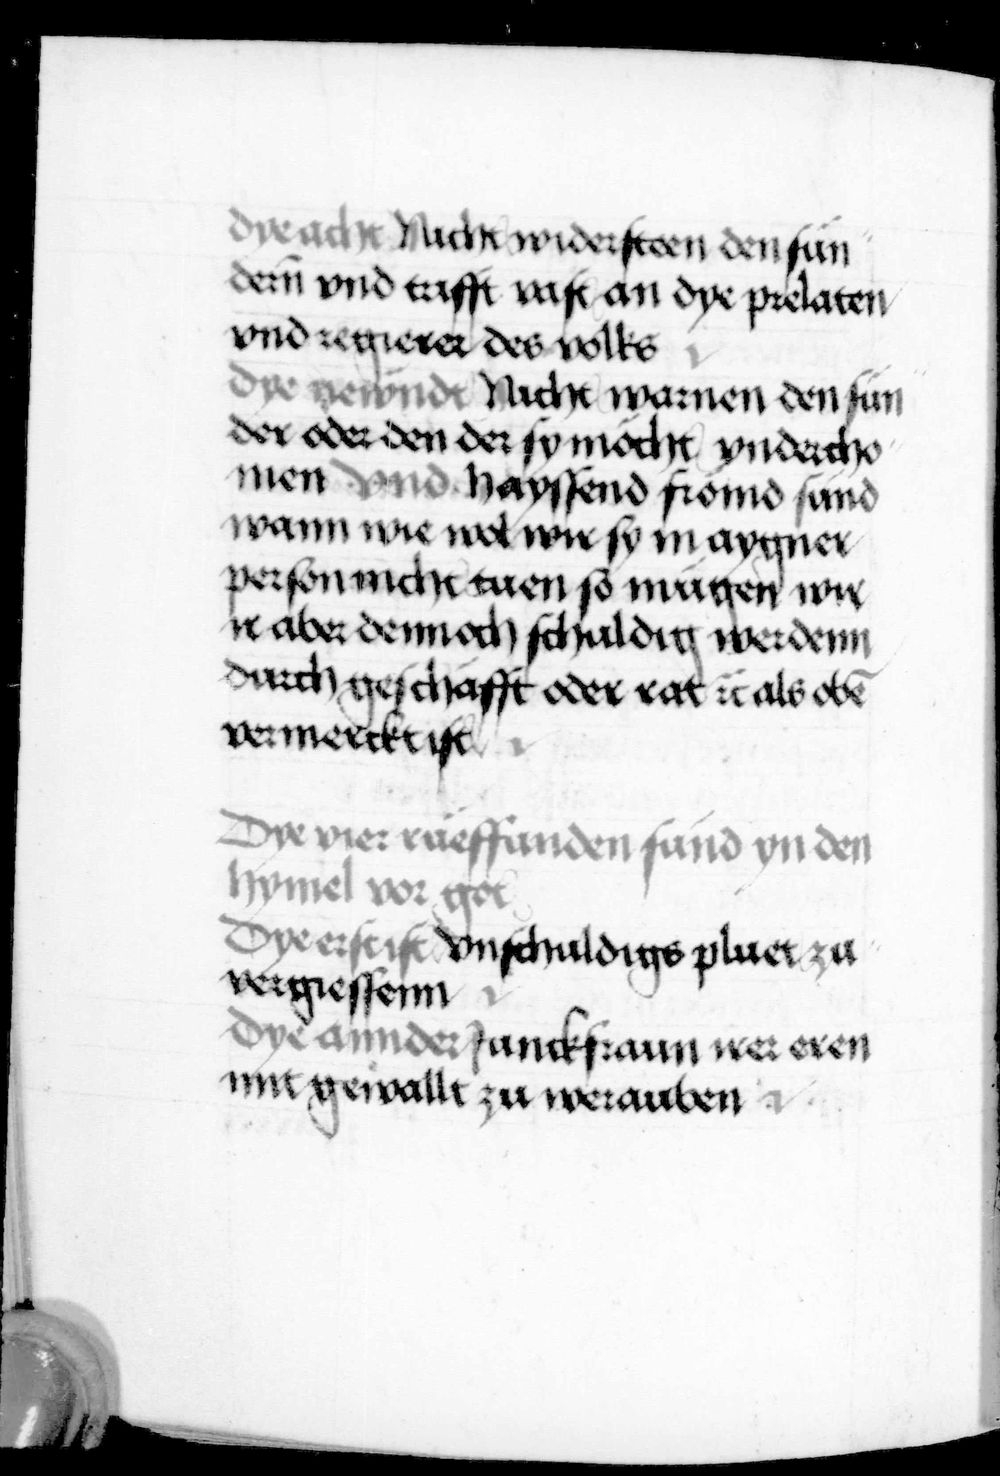 Dye acht Nicht widersteen den sün
dern̄ vnd trifft vast an dye prelaten
vnd regierer des volks
Dye newndt Nicht warnen den sün
der oder den der sy möcht vndercho
men vnd hayssend frömd sünd
wann wie wol wir sy in aygner
person nicht tuen so mügen wir
ir aber dennoch schuldig werdenn
durch geschäfft oder rat ꝛc als obē
vermerckt ist
Dye vier rüeffunden sünd yn den
hymel vor got
Dye erst ist vnschuldigs pluet zu
vergiessenn
Dye annder Junckfraun irer eren
mit gewallt zu werauben